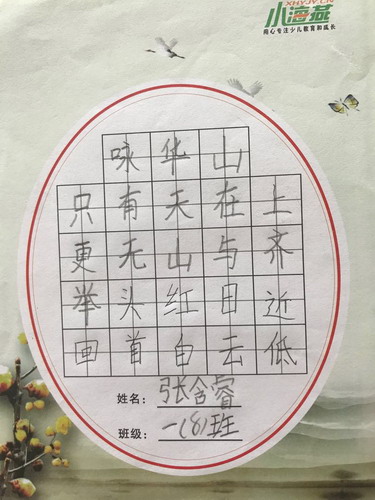 XHYJY.CN
小海燕
用心专注少儿教育和成长
咏华山
只有天在上
更无山与齐
举头红日近
回首白云低
姓名：张含睿
班级：一(8)班